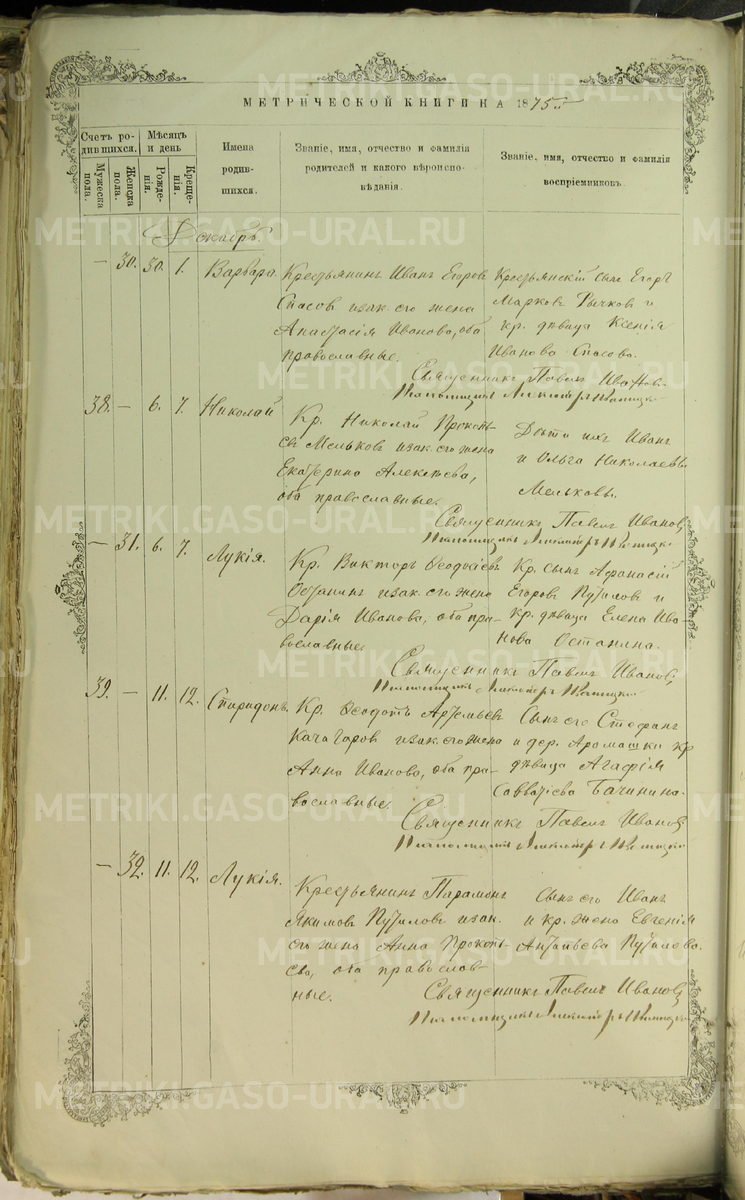 МЕТРИЧЕСКОЙ КНИГИ НА 1875
Счетъ ро-
дившихся.
Мужеска
пола.
Женска
пола.
Мѣсяцъ
и день
Рожде-
нія.
Креще-
нія.
Имена
родив-
шихся.
Званіе, имя, отчество и фамилія
родителей и какого вѣроиспо-
вѣданія.
Званіе, имя, отчество и фамилія
воспріемниковъ.
Декабрь.
— 30. 30. 1. Варвара.
Крестьянинъ Иванъ Егоровъ
Спасовъ и зак. его жена
Анастасія Иванова, оба
православные.
Крестьянскій сынъ Егоръ
Марковъ Рычковъ и
кр. дѣвица Ксенія
Иванова Спасова.
Священникъ Павелъ Ивановъ
38. — 6. 7. Николай
Кр. Николай Прокопь-
евъ Мельковъ и зак. его жена
Екатерина Алексѣева,
оба православные.
Дѣти ихъ Иванъ
и Ольга Николаевы
Мельковы.
Священникъ Павелъ Ивановъ
— 31. 6. 7. Лукія.
Кр. Викторъ Ѳеодосіевъ
Останинъ и зак. его жена
Дарія Иванова, оба пра-
вославные.
Кр. сынъ Афанасій
Егоровъ Путиловъ и
кр. дѣвица Елена Ива-
нова Останина.
Священникъ Павелъ Ивановъ
39. — 11. 12. Спиридонъ.
Кр. Ѳеодотъ Артемьевъ
Качагаровъ и зак. его жена
Анна Иванова, оба пра-
вославные.
Сынъ его Стефанъ
и дер. Аромашки кр
дѣвица Агафія
Савватіева Бачинина.
Священникъ Павелъ Ивановъ
— 32. 11. 12. Лукія.
Крестьянинъ Парамонъ
Якимовъ Путиловъ и зак.
его жена Анна Прокопь-
ева, оба православ-
ные.
Сынъ его Иванъ
и кр. жена Евгенія
Антипьева Путилова.
Священникъ Павелъ Ивановъ
METRIKI.GASO-URAL.RU